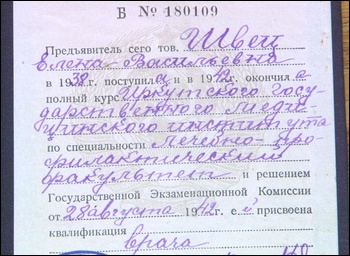 В № 180109
Предъявитель сего тов. Швец
Елена Васильевна
в 1938 г. поступила и в 1942 окончила
полный курс Иркутского Госу-
дарственного Меди-
цинского института
по специальности лечебно-про-
филактический
факультет и решением
Государственной Экзаменационной Комиссии
от 28 августа 1942 г. ей присвоена
квалификация
врача